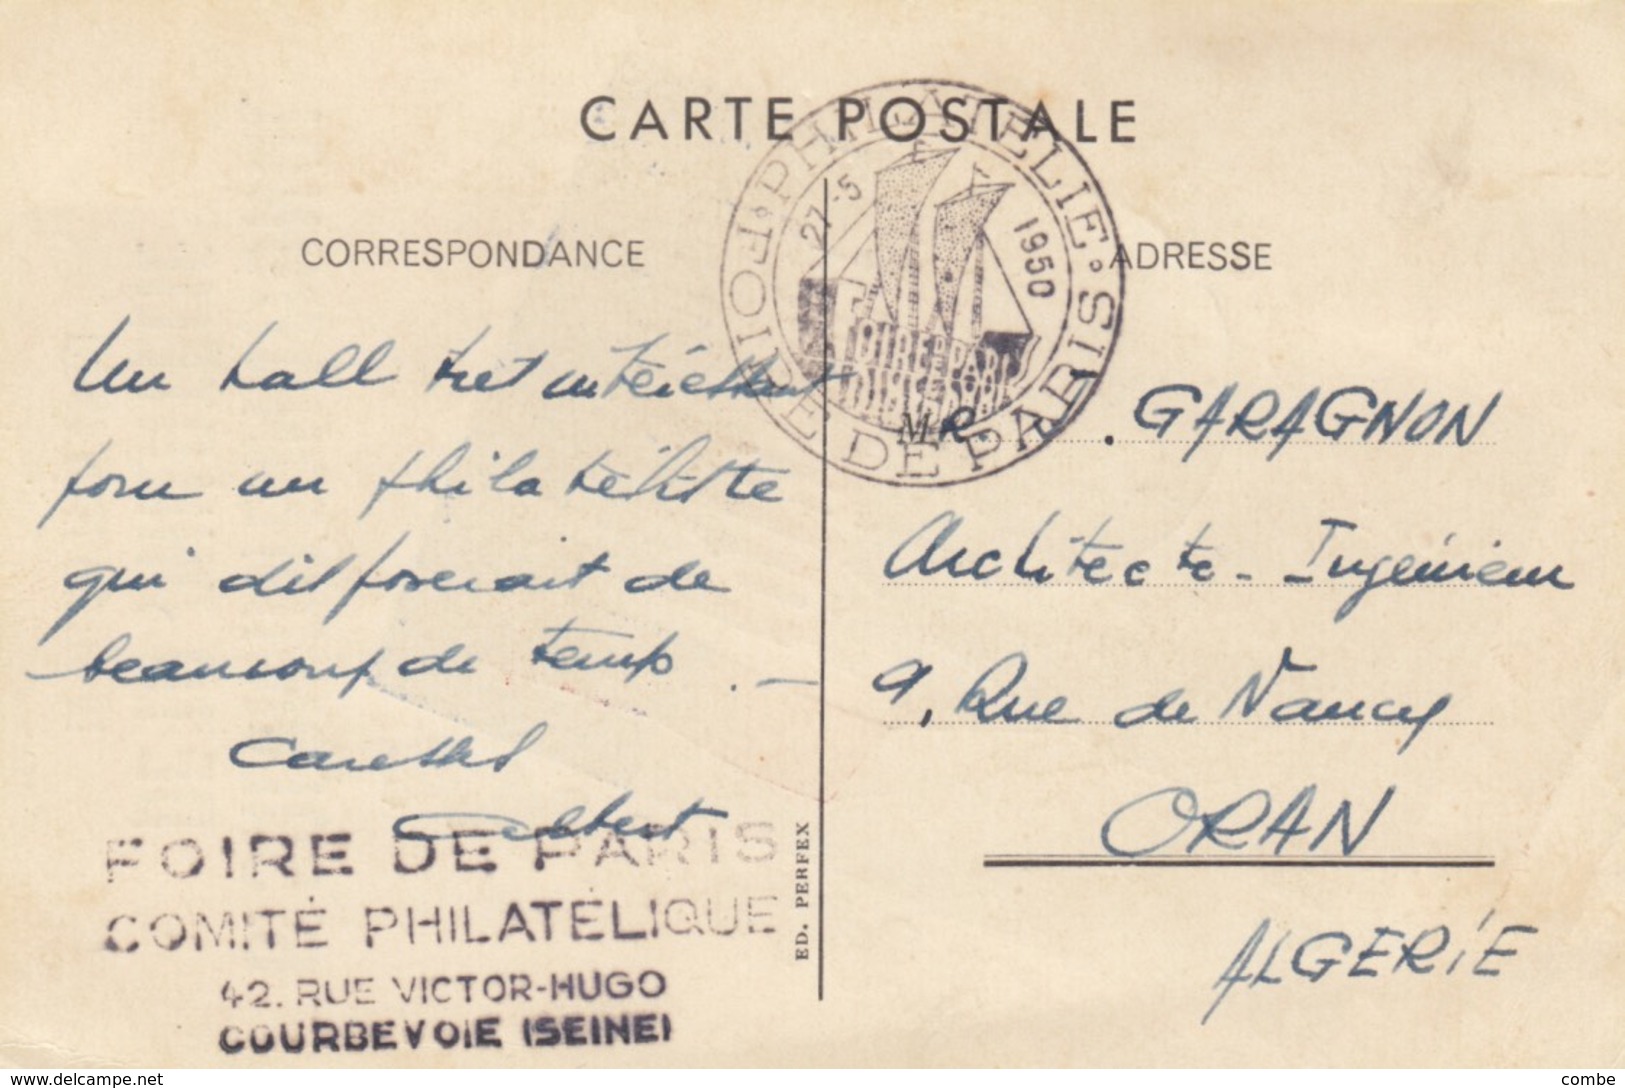 CARTE POSTALE
PHILATELIE
FOIRE DE PARIS
27-5
1950
FOIRE DE PARIS
CORRESPONDANCE
ADRESSE
Un hall très intéressant
pour un philatéliste
qui disposerait de
beaucoup de temps. -
Caresses
FOIRE DE PARIS
COMITÉ PHILATÉLIQUE
42. RUE VICTOR-HUGO
COURBEVOIE (SEINE)
ED. PERFEX
MR. GARAGNON
Architecte - Ingénieur
9, Rue de Nancy
ORAN
ALGERIE
www.delcampe.net
combe